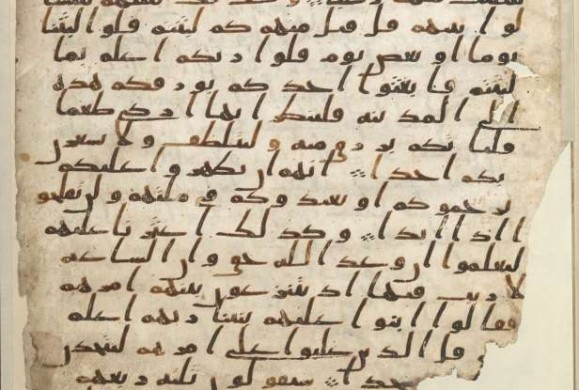 رعبا وكذلك بعثنهم ليتسا
لوا بينهم قل قيل منهم كم لبثتم قلوا لبثنا
يوما او بعض يوم قلوا ربكم اعلم بما
لبثتم فابعثوا احدكم بورقكم هذه
الى المدينه فلينظر ايها ازكى طعما
فلياتكم برزق منه وليتلطف ولا يشعرن
بكم احدا انهم ان يظهروا عليكم
يرجموكم او يعيدوكم في ملتهم ولن تفلحو
ا اذا ابدا وكذلك اعثرنا عليهم
ليعلموا ان وعد الله حق وان الساعه
لا ريب فيها اذ يتنزعون بينهم امرهم
فقالوا ابنوا عليهم بنينا ربهم اعلم
قل الذين غلبوا على امرهم لنتخذن
جدا سيقولون ثلثه ربعهم